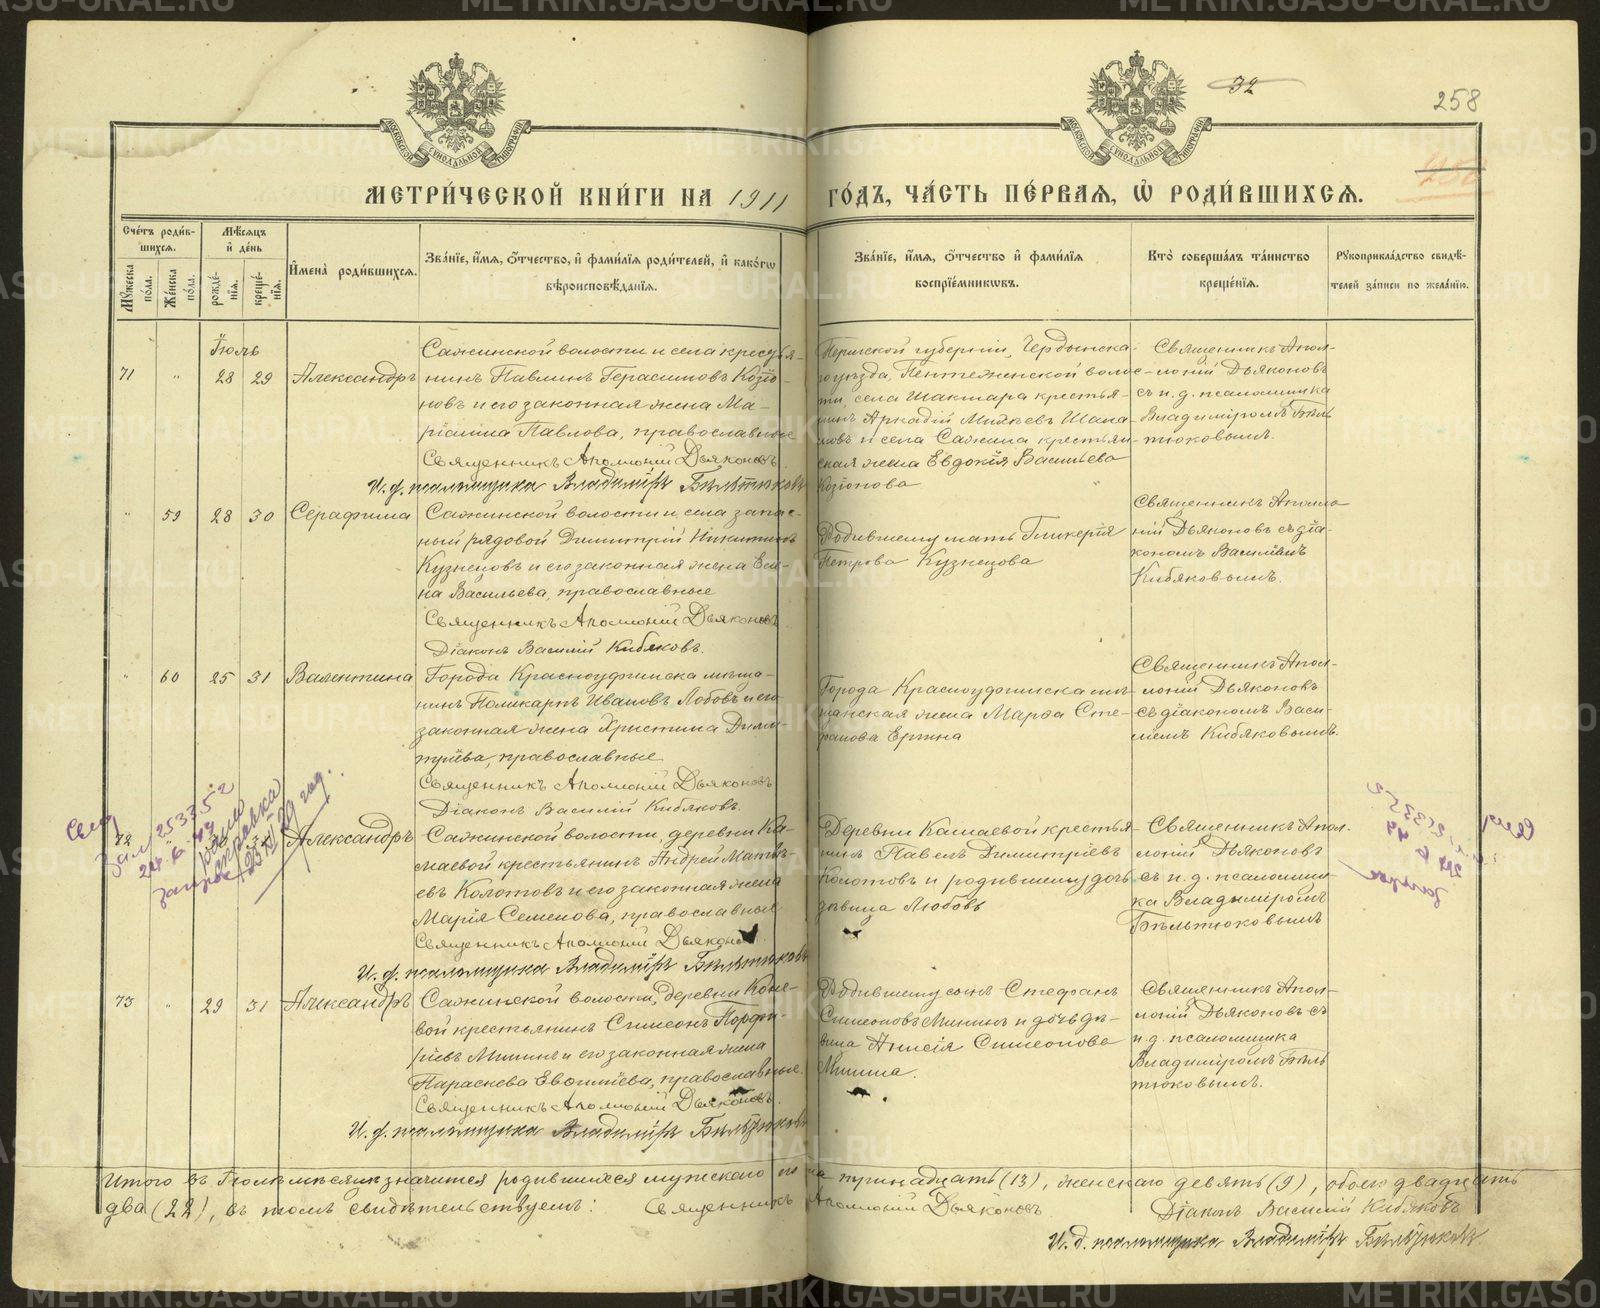 32
258
МЕТРИ́ЧЕСКОЙ КНИ́ГИ НА 1911 ГО́ДЪ, ЧА́СТЬ ПЕ́РВАѦ, Ѡ҆ РОДИ́ВШИХСѦ.
Сче́тъ роди́в-
шихсѧ.
Мѣ́сѧцъ
и҆ де́нь
Мꙋ́жеска по́ла.
Же́нска по́ла.
рожде́-
нїѧ.
креще́-
нїѧ.
И҆мена̀ роди́вшихсѧ.
Зва́нїе, и҆́мѧ, ѻ҆́тчество, и҆ фами́лїѧ роди́телей, и҆ како́гѡ
вѣроисповѣ́данїѧ.
Зва́нїе, и҆́мѧ, ѻ҆́тчество и҆ фами́лїѧ
воспрїе́мникѡвъ.
Кто̀ соверша́лъ та́инство
креще́нїѧ.
Рꙋкоприкла́дство свидѣ́-
телей за́писи по жела́нїю.
Іюль
71 " 28 29 Александръ
Сажинской волости и села крестья-
нинъ Павлинъ Герасимовъ Козіо-
новъ и его законная жена Ма-
ріанна Павлова, православные
Священникъ Аполлоній Дьяконовъ.
И. д. псаломщика Владиміръ Бѣльтюковъ
Пермской губерніи, Чердынска-
го уѣзда, Пентеженской волос-
ти, села Шакшара крестья-
нинъ Аркадій
и села Сажина крестьян-
ская жена Евдокія Васильева
Козіонова
Священникъ Апол-
лоній Дьяконовъ
съ и. д. псаломщика
Владиміромъ Бѣль-
тюковымъ.
" 59 28 30 Серафима
Сажинской волости и села запас-
ный рядовой Димитрій Никитинъ
Кузнецовъ и его законная жена Еле-
на Васильева, православные
Священникъ Аполлоній Дьяконовъ
Діаконъ Василій Кибяковъ.
Родившему мать Гликерія
Петрова Кузнецова
Священникъ Аполло-
ній Дьяконовъ съ діа-
кономъ Василіемъ
Кибяковымъ.
" 60 25 31 Валентина
Города Красноуфимска мѣща-
нинъ Поликарпъ Ивановъ Лобовъ и его
законная жена Христина Дими-
тріева, православные
Священникъ Аполлоній Дьяконовъ
Діаконъ Василій Кибяковъ.
Города Красноуфимска мѣ-
щанская жена Марѳа Сте-
фанова Ергина
Священникъ Апол-
лоній Дьяконовъ
съ діакономъ Васи-
ліемъ Кибяковымъ.
72 Александръ
Сажинской волости, деревни Ка-
маевой крестьянинъ Андрей Матвѣ-
евъ Колотовъ и его законная жена
Марія Семенова, православные
Священникъ Аполлоній Дьяконовъ
И. д. псаломщика Владиміръ Бѣльтюковъ
Деревни Камаевой крестья-
нинъ Павелъ Димитріевъ
Колотовъ и родившему дочь
дѣвица Любовь
Священникъ Апол-
лоній Дьяконовъ
съ и. д. псаломщи-
ка Владиміромъ
Бѣльтюковымъ
73 " 29 31 Александръ
Сажинской волости, деревни Коне-
вой крестьянинъ Симеонъ Порфи-
ріевъ Мининъ и его законная жена
Параскева Евѳиміева, православные.
Священникъ Аполлоній Дьяконовъ.
И. д. псаломщика Владиміръ Бѣльтюковъ
Родившему сынъ Стефанъ
Симеоновъ Мининъ и дочь дѣ-
вица Анисія Симеонова
Минина.
Священникъ Апол-
лоній Дьяконовъ съ
и. д. псаломщика
Владиміромъ Бѣль-
тюковымъ.
Итого въ Іюлѣ мѣсяцѣ значится родившихся мужского пола тринадцать (13), женскаго девять (9), обоего двадцать
два (22), въ томъ свидѣтельствуемъ: Священникъ Аполлоній Дьяконовъ. Діаконъ Василій Кибяковъ
И. д. псаломщика Владиміръ Бѣльтюковъ